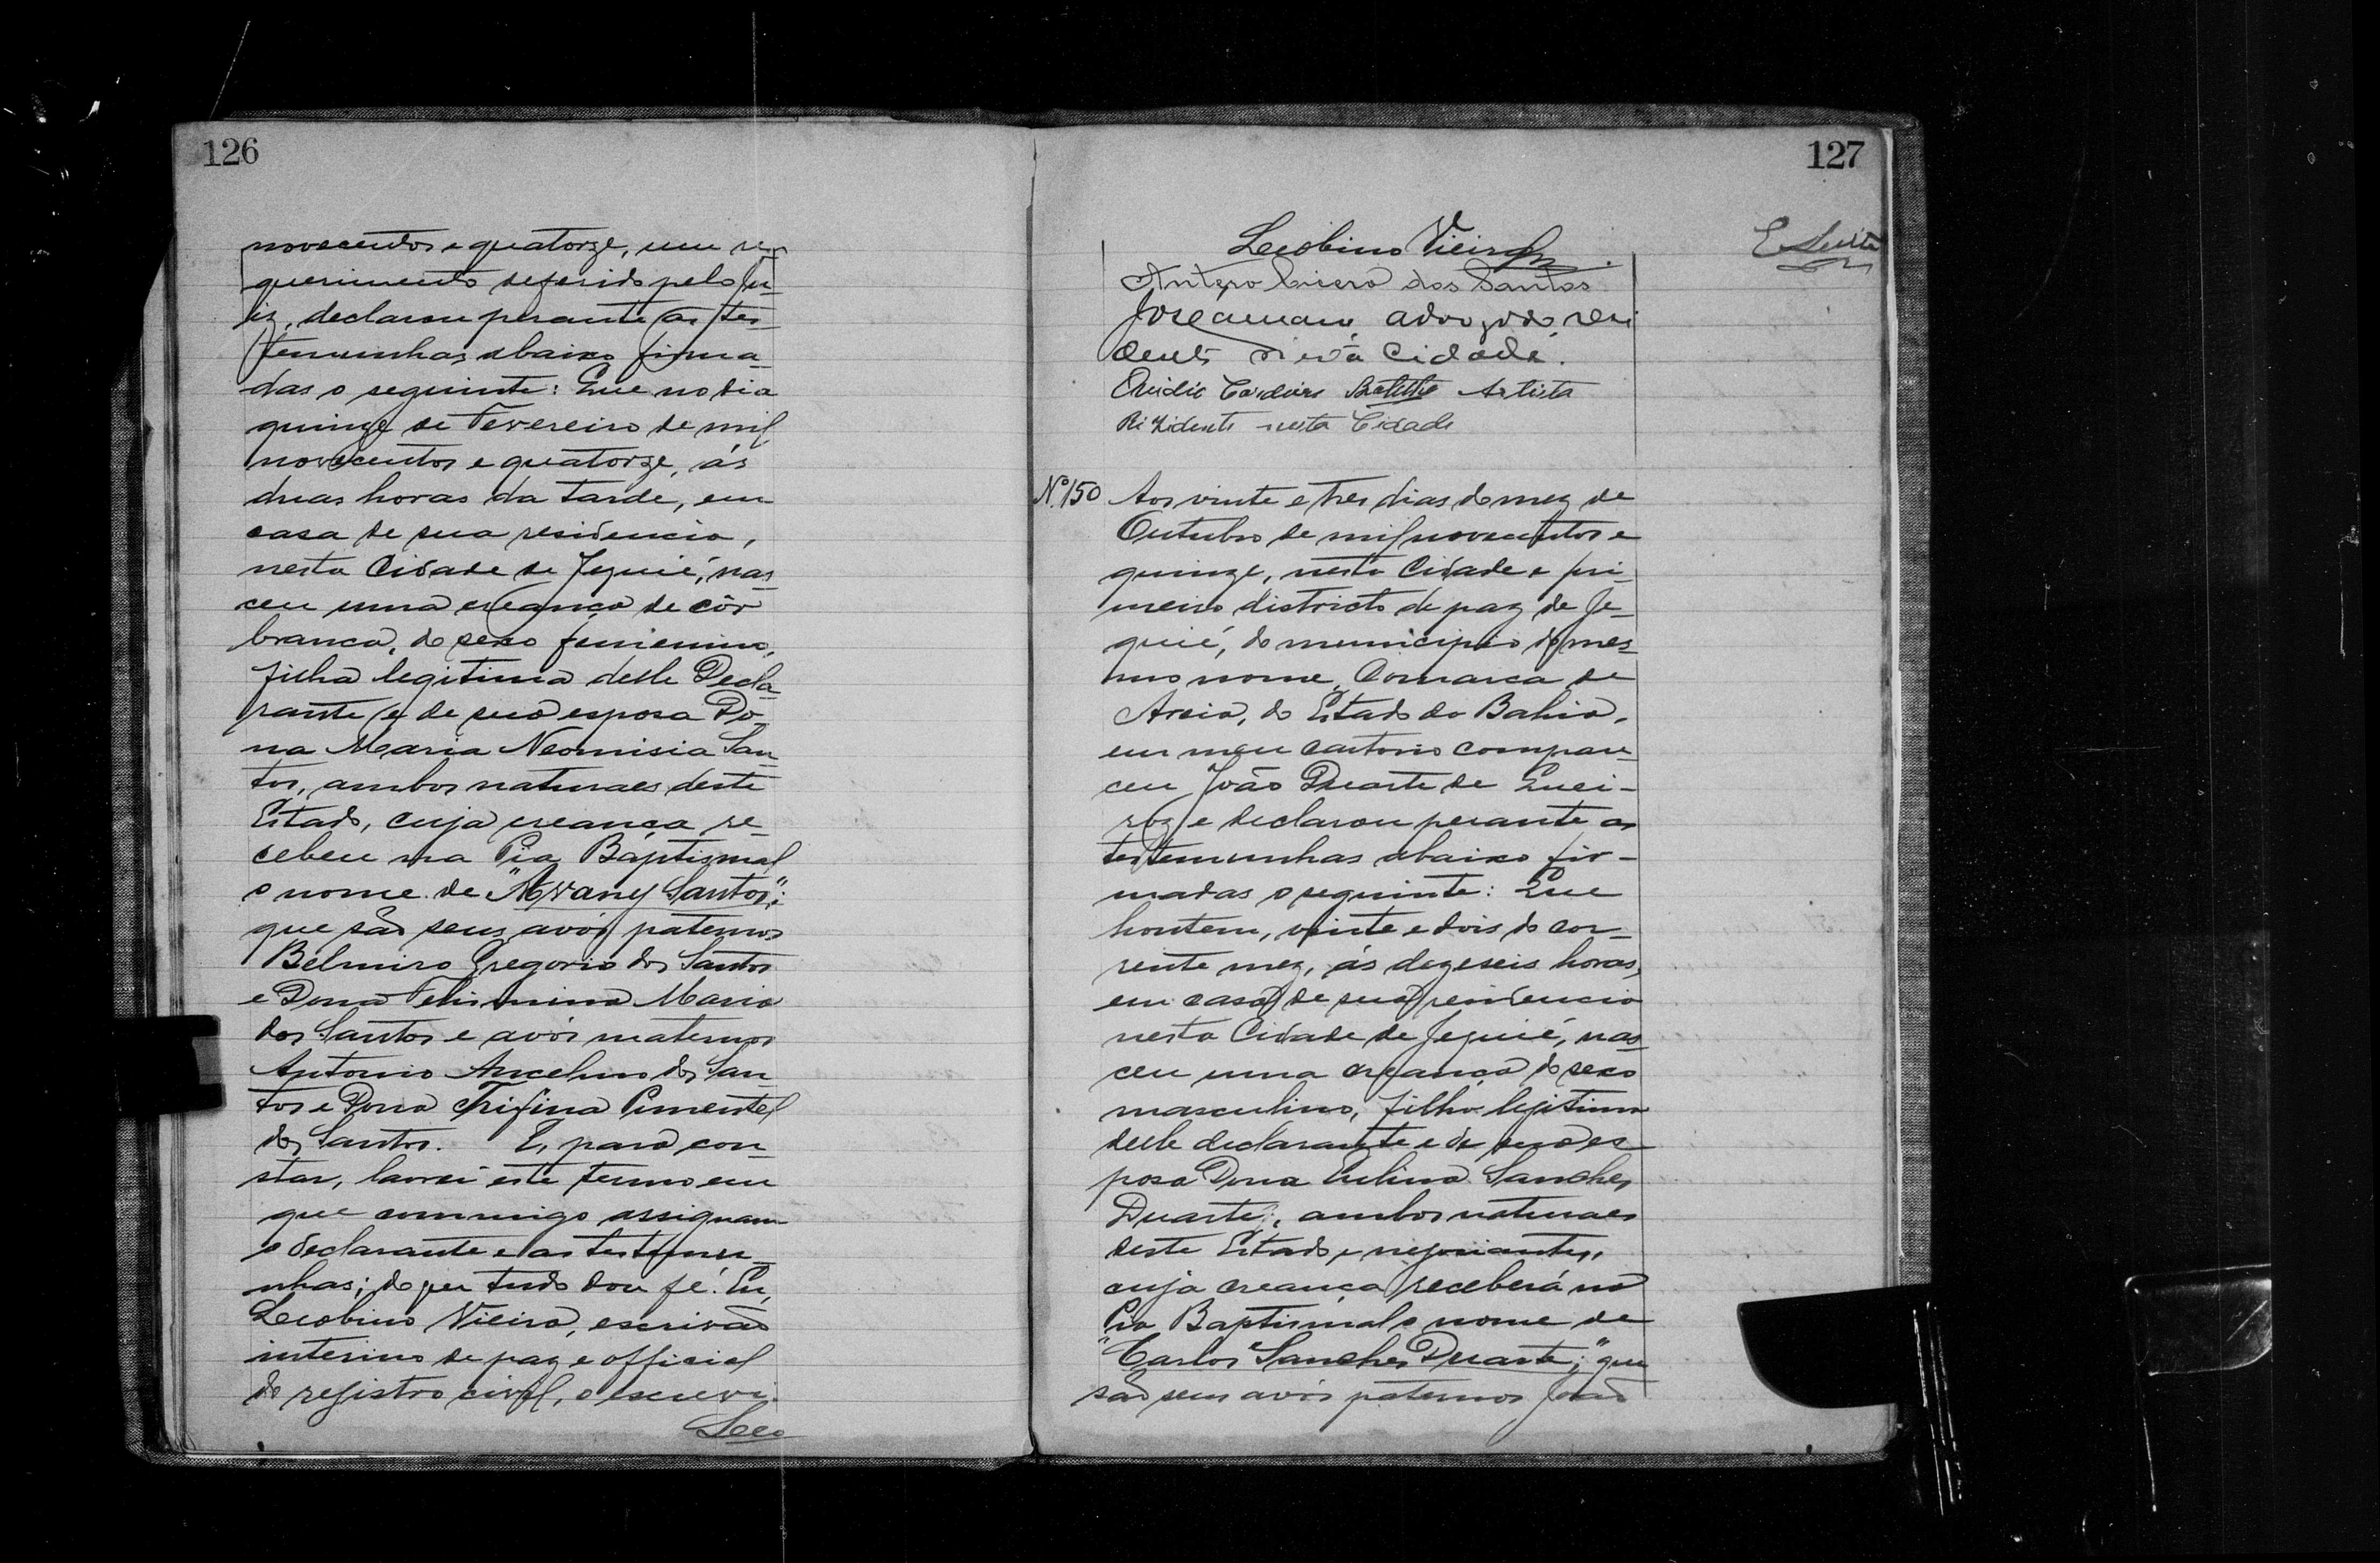 126
novecentos e quatorze, um re-
querimento deferido pelo Ju-
iz, declarou perante as tes-
temunhas abaixo firma-
das o seguinte: Que no dia
quinze de Fevereiro de mil
novecentos e quatorze, ás
duas horas da tarde, em
casa de sua residencia,
nesta Cidade de Jequié, nas-
ceu uma creança de côr
branca, do sexo feminino,
filha legitima delle Decla-
rante e de sua esposa Do-
na Maria Neomisia San-
tos, ambos naturaes deste
Estado, cuja creança re-
cebeu na Pia Baptismal
o nome de "Evany Santos";
que são seus avós paternos
Belmiro Gregorio dos Santos
e Dona Maria
dos Santos e avós maternos
Antonio Ancelmo dos San-
tos e Dona Trifina Pimentel
dos Santos. E, para con-
star, lavrei este termo em
que commigo assignam
o declarante e as testemu-
nhas; do que tudo dou fé. Eu,
Leobino Vieira, escrivão
interino de paz e official
do registro civil, o escrevi.
Leo
127
Leobino Vieira
E. Leite
Antero Cicero dos Santos
José advogado, resi
dente nesta Cidade.
Ovidio Cordeiro Artista
Rizidente nesta Cidade
Nº 150 Aos vinte e tres dias do mez de
Outubro de mil novecentos e
quinze, nesta Cidade e pri-
meiro districto de paz de Je-
quié, do municipio do mes-
mo nome, Comarca de
Areia, do Estado da Bahia,
em meu cartorio compare-
ceu João Duarte de Quei-
roz e declarou perante as
testemunhas abaixo fir-
madas o seguinte: Que
hontem, vinte e dois do cor-
rente mez, ás dezeseis horas,
em casa de sua residencia
nesta Cidade de Jequié, nas-
ceu uma creança do sexo
masculino, filho legitimo
delle declarante e de sua es-
posa Dona Sanches
Duarte, ambos naturaes
deste Estado e negociantes,
cuja creança receberá na
Pia Baptismal o nome de
"Carlos Sanches Duarte;" que
são seus avós paternos João